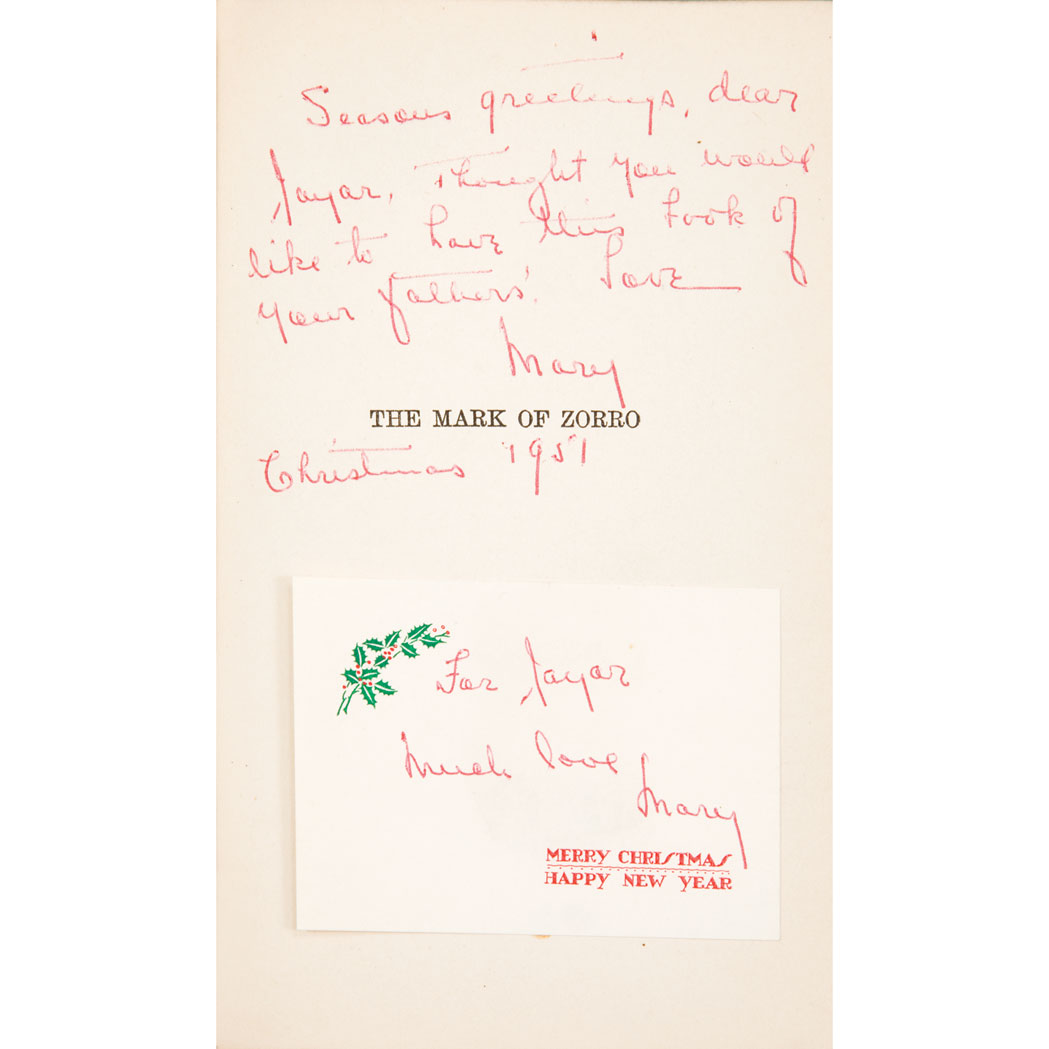 Seasons greetings, dear
Jayar, Thought you would
like to have this book of
your fathers'. Love
Mary
THE MARK OF ZORRO
Christmas 1951
For Jayar
Much love
Mary
MERRY CHRISTMAS
HAPPY NEW YEAR